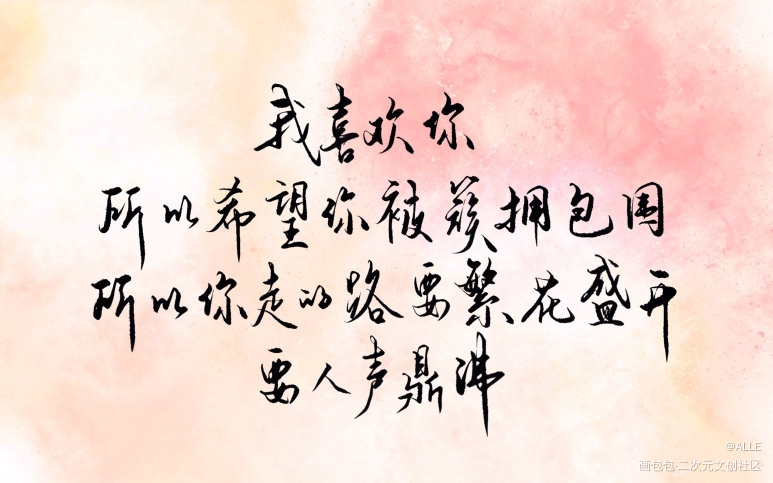 我喜欢你
所以希望你被簇拥包围
所以你走的路要繁花盛开
要人声鼎沸
@ALLE
画包包·二次元文创社区